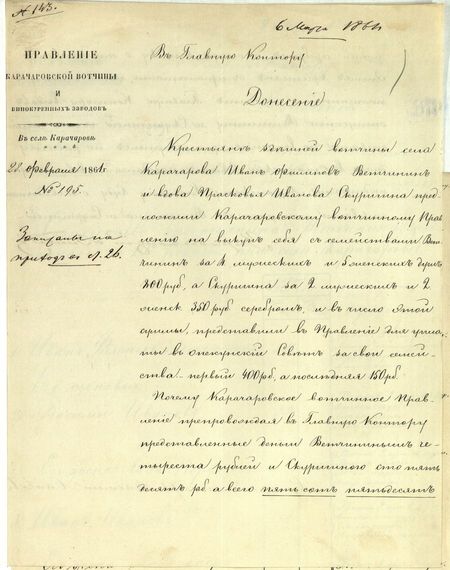 № 143.
6 Марта 1861
ПРАВЛЕНІЕ
КАРАЧАРОВСКОЙ ВОТЧИНЫ
И
ВИНОКУРЕННЫХЪ ЗАВОДОВЪ
Въ селѣ Карачаровѣ
28 Февраля 1861г
№ 195.
Записаны на
приходъ ст. 26.
Въ Главную Контору
Донесеніе
Крестьянъ здѣшней вотчины села
Карачарова Иванъ Филиповъ Ветчининъ
и вдова Прасковья Иванова Скуришна пред
ложили Карачаровскому вотчинному Прав
ленію на выкупъ себя съ семействами Вет
чининъ за 4 мужескихъ и 5 женскихъ душъ
700 руб, а Скуришна за 2 мужескихъ и 2
женск 350 руб серебромъ, и въ число этой
суммы, представили въ Правленіе для уплa
ты въ опекунскій Совѣтъ за свои семей
ства первый 400 руб, а послѣдняя 150 руб.
Почему Карачаровское вотчинное Прав
леніе препровождая въ Главную Контору
представленные деньги Ветчининымъ че
тыреста рублей и Скуришной сто пять
десятъ руб а всего пять сотъ пятьдесятъ